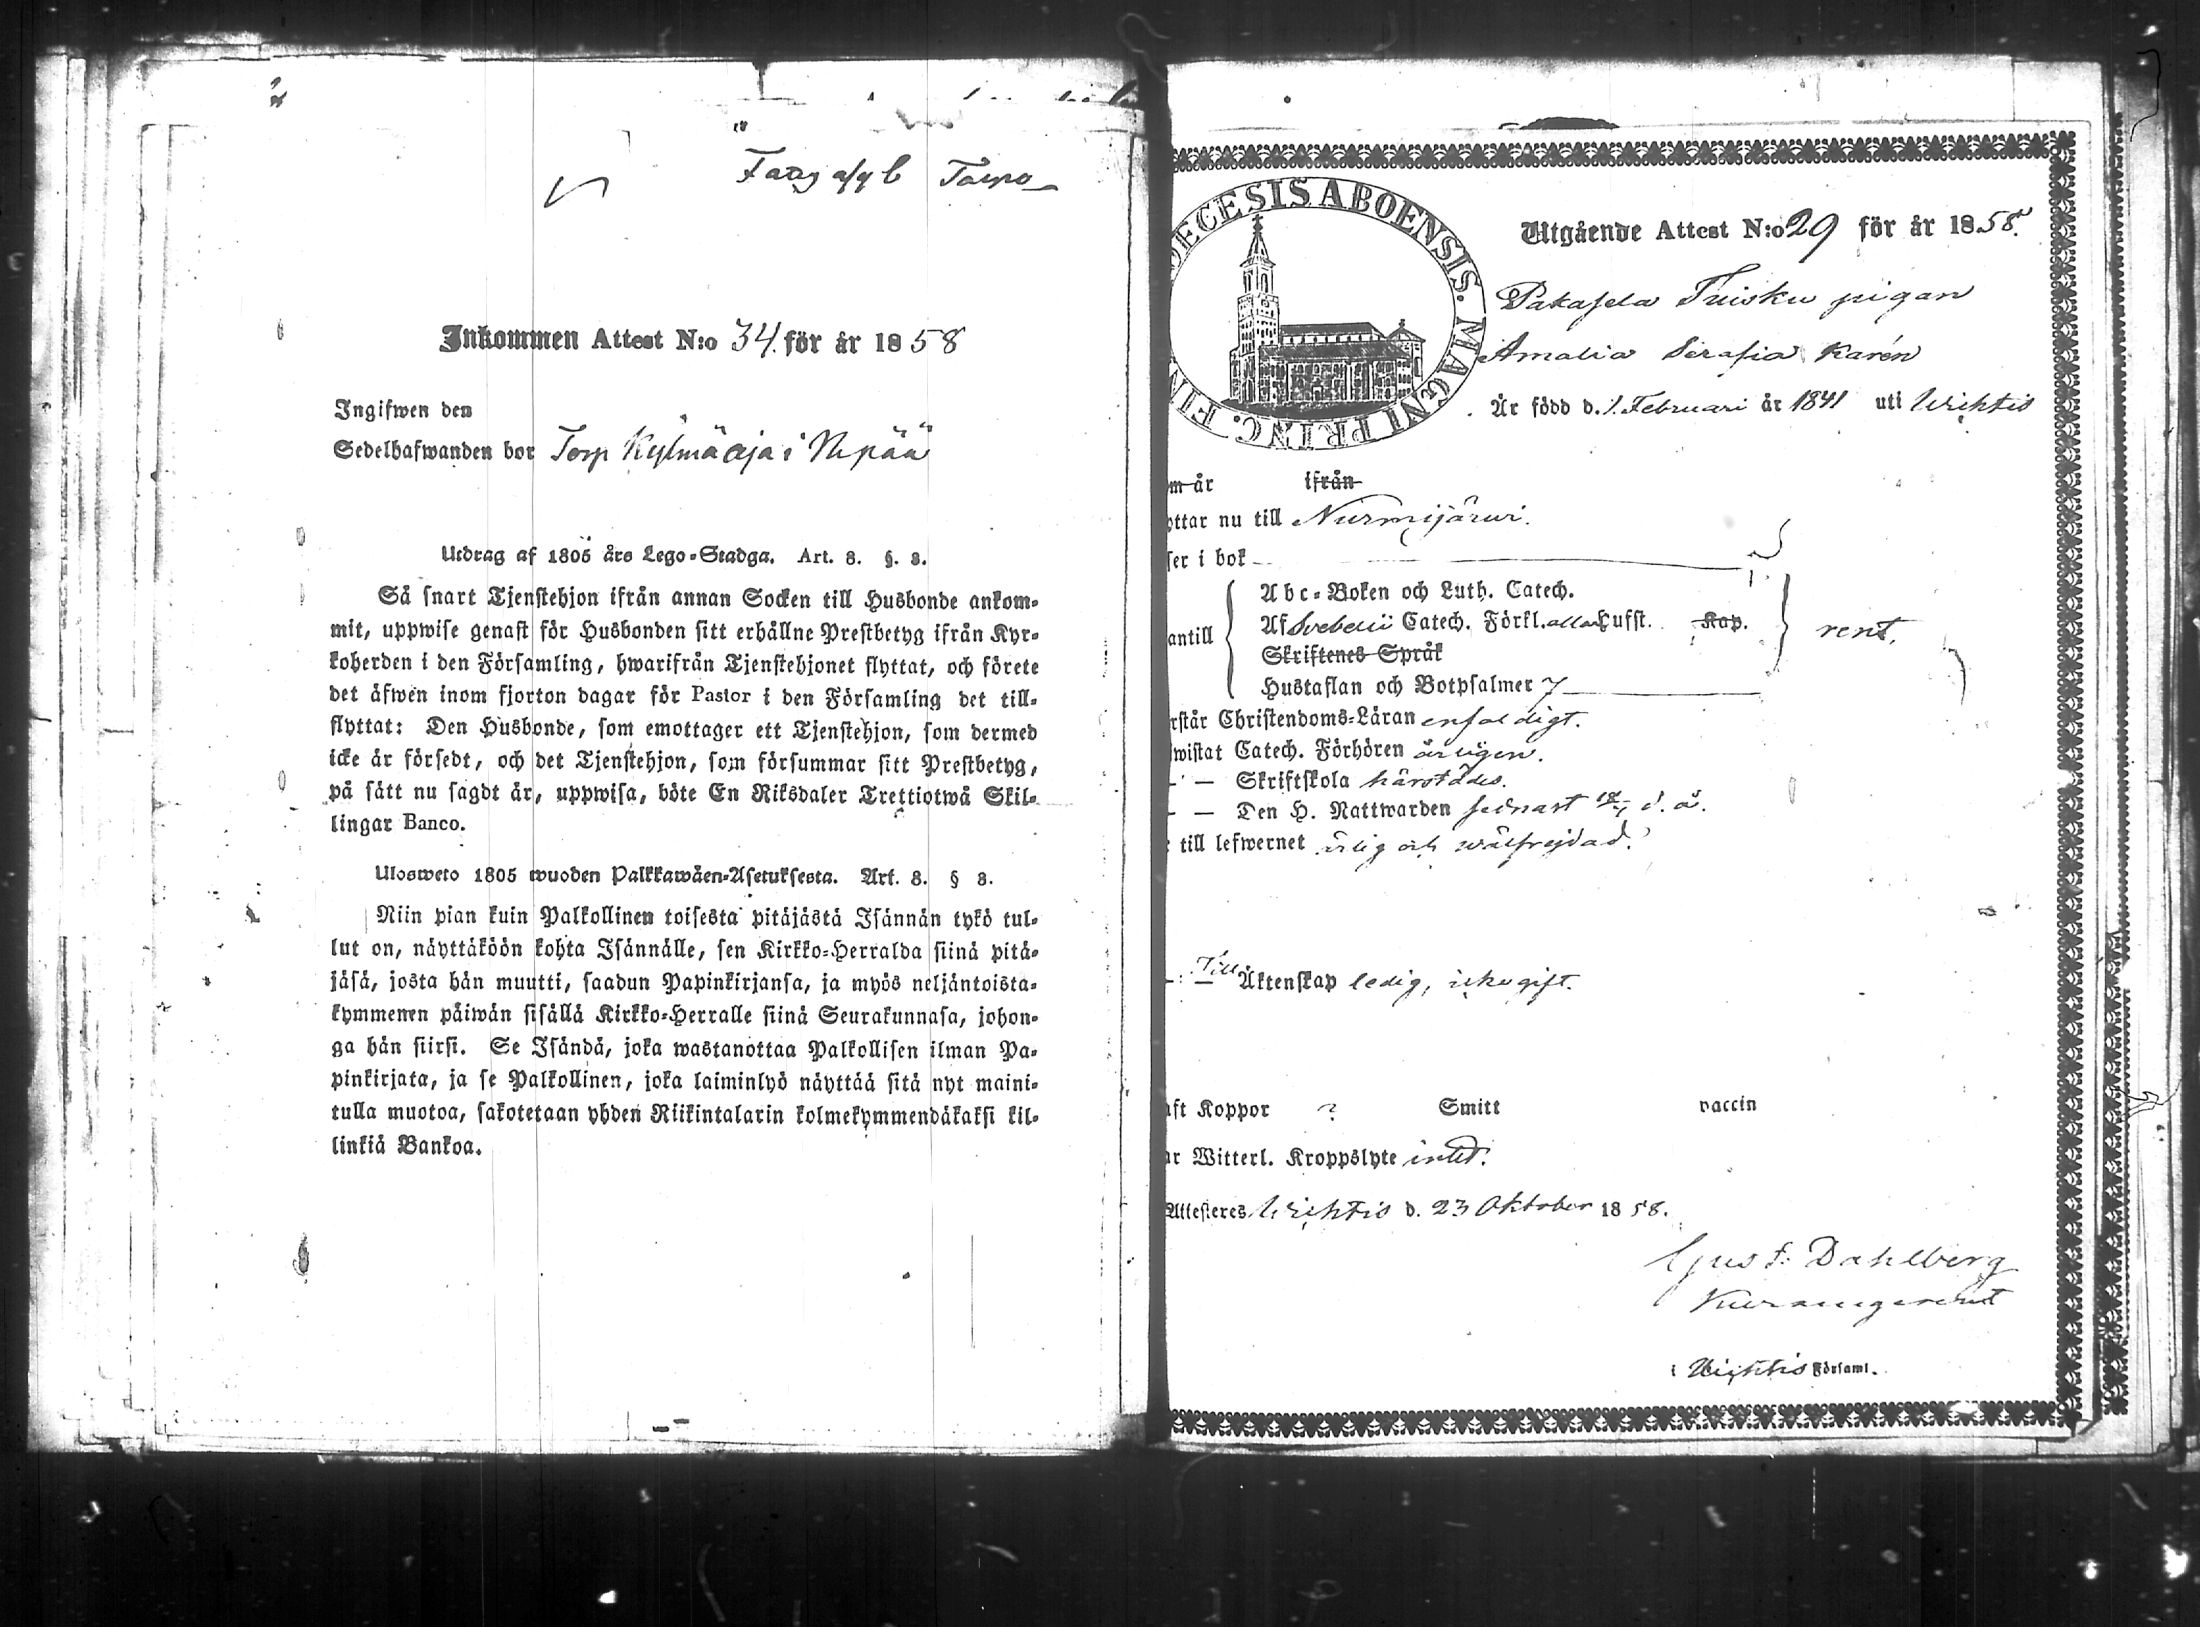 Inkommen Attest N:o 34. för år 1858
Ingifwen den
Sedelhafwanden bor Torp Kylmäoja i Npää
Utdrag af 1805 års Lego-Stadga. Art. 8. §. 8.
Så snart Tjenstehjon ifrån annan Socken till Husbonde ankom-
mit, uppwise genast för Husbonden sitt erhållne Prestbetyg ifrån Kyr-
koherden i den Församling, hwarifrån Tjenstehjonet flyttat, och förete
det äfwen inom fjorton dagar för Pastor i den Församling det till-
flyttat: Den Husbonde, som emottager ett Tjenstehjon, som dermed
icke är försedt, och det Tjenstehjon, som försummar sitt Prestbetyg,
på sätt nu sagdt är, uppwisa, böte En Riksdaler Trettiotwå Skil-
lingar Banco.
Ulosweto 1805 wuoden Palkkawäen-Asetuksesta. Art. 8. § 8.
Niin pian kuin Palkollinen toisesta pitäjästä Isännän tykö tul-
lut on, näyttäköön kohta Isännälle, sen Kirkko-Herralda siinä pitä-
jäsä, josta hän muutti, saadun Papinkirjansa, ja myös neljäntoista-
kymmenen päiwän sisällä Kirkko-Herralle siinä Seurakunnasa, johon-
ga hän siirsi. Se Isändä, joka wastanottaa Palkollisen ilman Pa-
pinkirjata, ja se Palkollinen, joka laiminlyö näyttää sitä nyt maini-
tulla muotoa, sakotetaan yhden Riikintalarin kolmekymmendäkaksi kil-
linkiä Bankoa.
DECESIS ABOENSIS. MAGNI PRINC. FIN
Utgående Attest N:o 29 för år 1858.
Pakasela Tuisku pigan
Amalia Serafia Karén
Är född d. 1 Februari år 1841 uti Wichtis
om år ifrån
yttar nu till Nurmijärwi.
ser i bok
antill
Abc-Boken och Luth. Catech.
Af Svebelii Catech. Förkl. alla Hufst. Kap.
Skriftenes Språk
Hustaflan och Botpsalmer 7
rent.
rstår Christendoms-Läran enfaldigt.
wistat Catech. Förhören årligen.
- - Skriftskola härstädes.
- - Den H. Nattwarden sednast d. å.
till lefwernet ärlig och wälfrejdad.
- Till Äktenskap ledig, icke gift.
aft Koppor ? Smitt vaccin
ar Witterl. Kroppslyte intet.
Attesteres Wichtis d. 23 Oktober 1858.
Gust. Dahlberg
i Wichtis Församl.